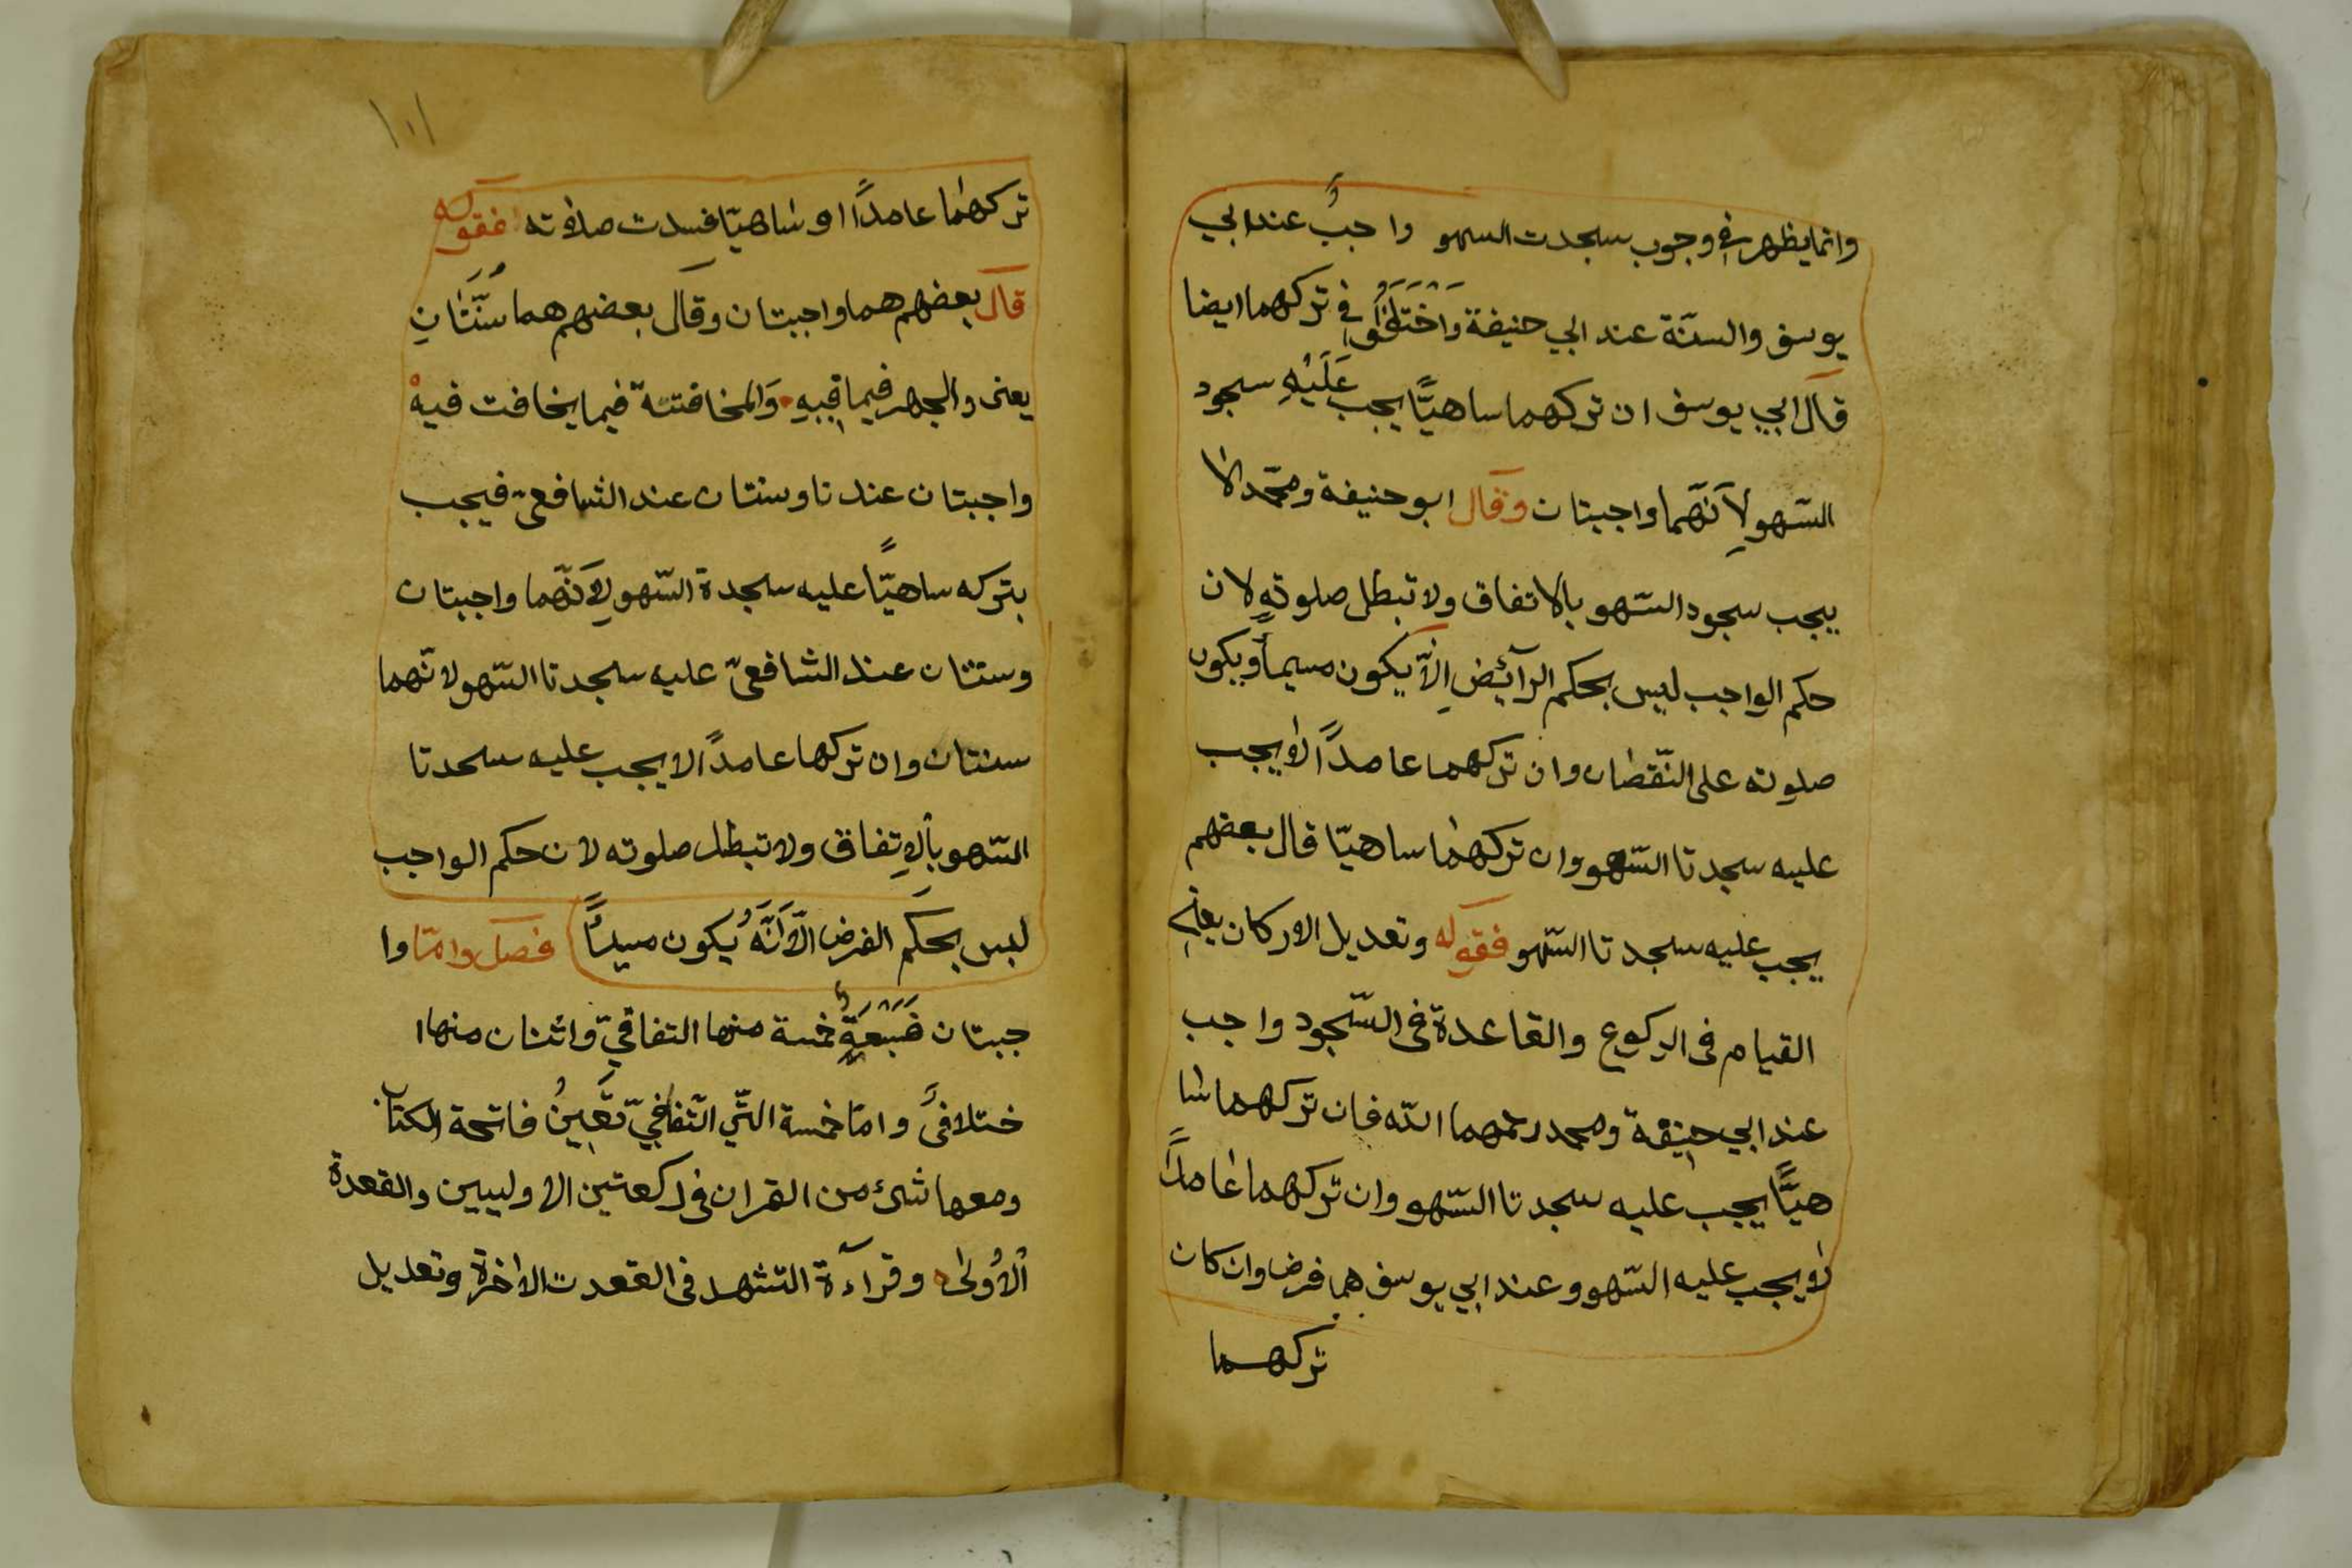 وانما يظهر في وجوب سجدت السهو واجبٌ عند ابي
يوسف والسنّة عند ابي حنيفة وَاخْتَلَفُوا في تركهما ايضا
قال ابي يوسف ان تركهما ساهيًّا يجب عَلَيْهِ سجود
السّهو لِاَنّهما واجبتان وقال ابو حنيفة ومحمّد لا
يجب سجود السّهو بالاتفاق ولا تبطل صلوتهِ لان
حكم الواجب ليس بحكم الرآئيضِ اِلّا يكون مسيمأ ويكون
صلوته على النّقصان وان تركهما عامدًا لا يجب
عليه سجدتا السّهو وان تركهما ساهيّا قال بعضهم
يجب عليه سجدتا السّهو فقوله وتعديل الاركان يعني
القيام فى الركوع والقاعدة فى السّجود واجب
عند ابي حنيفة ومحمد رحمهما الله فان تركهما سا
هيًّا يجب عليه سجدتا السّهو وان تركهما عامدًا
لا يجب عليه السّهو وعند ابي يوسف هما فرض وان كان
تركهما
١٠١
تركهما عامدًا او ساهيّا فسدت صلاته فقوله
قال بعضهم هما واجبتان وقال بعضهم هما سُنَّتَانِ
يعنى والجهر فيما فيهِ وَالمخافتتة فيما يخافت فيهْ
واجبتان عندنا وسنتان عند الشافعىّ فيجب
بتركه ساهيًّا عليه سجدة السّهو لِاَنّهما واجبتان
وسنتان عند الشافعىّ عليه سجدتا السّهو لانّهما
سنتتان وان تركها عامدًا لا يجب عليه سجدتا
السّهو بألاِتفاق ولا تبطل صلوته لان حكم الواجب
ليس بحكم الفرض الّا اَنَّهُ يكون مسيئًا فصل وامّا وا
جبتان فَسَبْعَةٍ خمسة منها التفاقيّ واثنان منها ا
ختلافىّ وامّا خمسة التّي التّفاقيّ تَعْيِينُ فاتحة الكتاب
ومعها شئ من القران فى ركعتين الاوليين والقعدة
الأولى وقرآءة التشهد فى القعدت الاخرة وتعديل